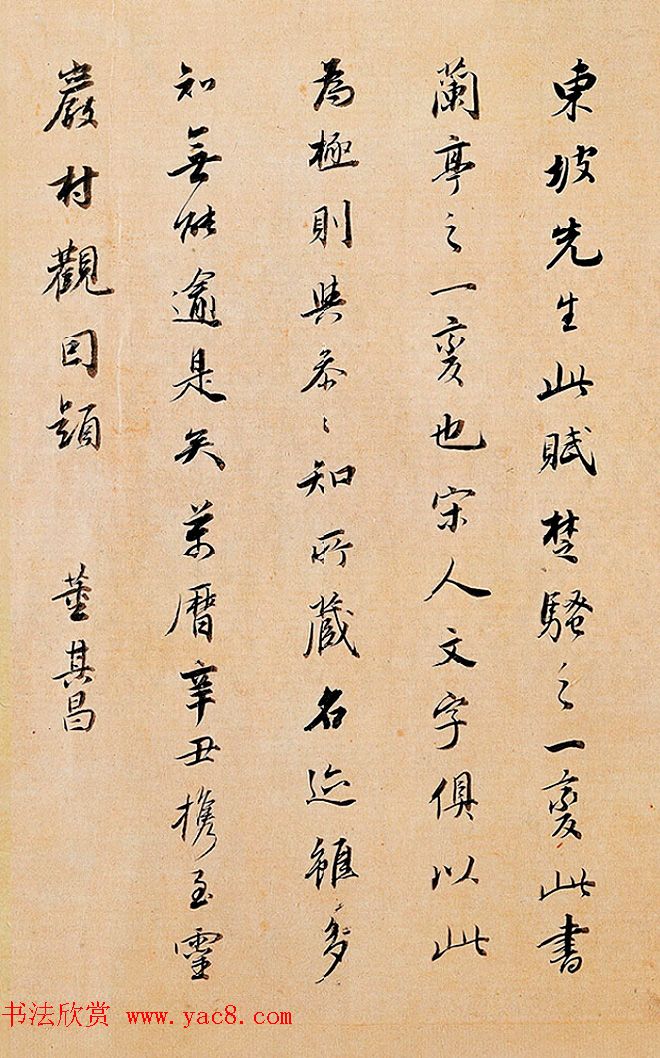 東坡先生此賦楚騷之一變此書
蘭亭之一變也宋人文字俱以此
為極則與參參知所藏名迹雖多
知無能逾是矣萬曆辛丑攜至靈
巖村觀因題 董其昌
书法欣赏 www.yac8.com